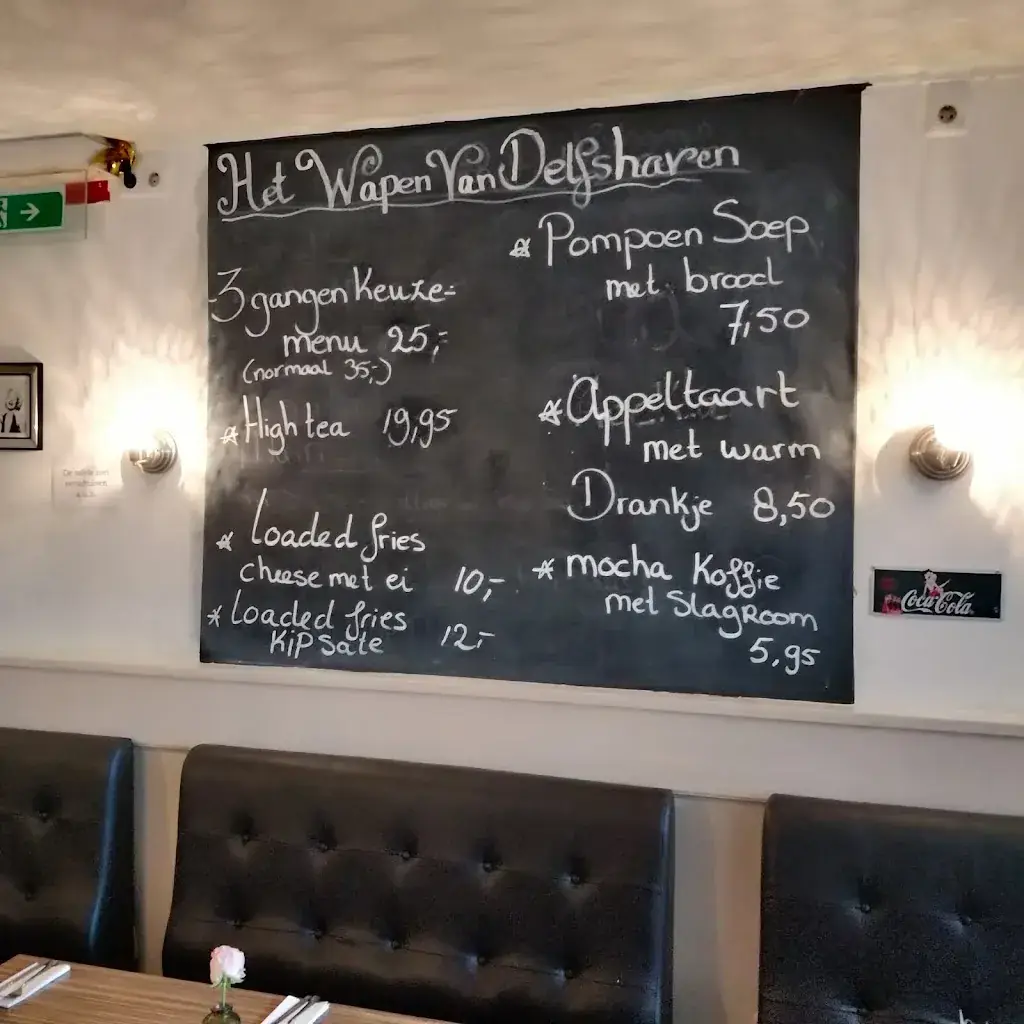 Het Wapen Van Delfshaven
-3 gangen Keuze-
menu 25,-
(normaal 35,-)
* High tea 19,95
* Loaded fries
cheese met ei 10,-
* Loaded fries
Kip Sate 12,-
* Pompoen Soep
met brood
7,50
* Appeltaart
met warm
Drankje 8,50
* mocha Koffie
met SlagRoom
5,95
Coca-Cola